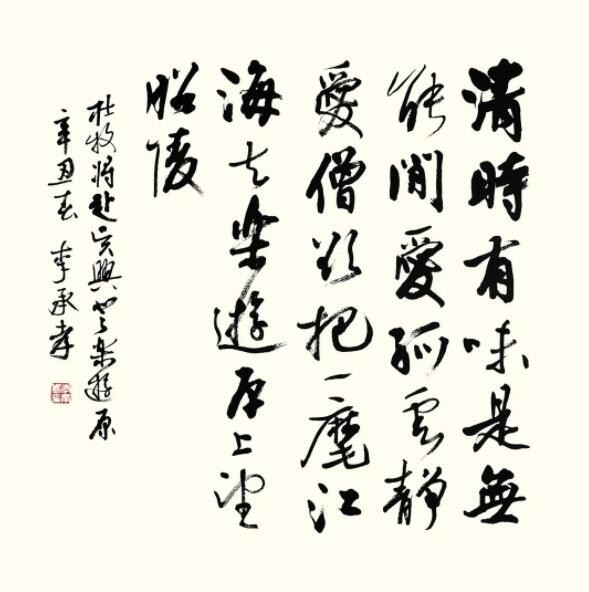 清時有味是無
能閒愛孤雲靜
愛僧欲把一麾江
海去樂遊原上望
昭陵
杜牧將赴吳興登樂遊原
辛丑春 李承孝